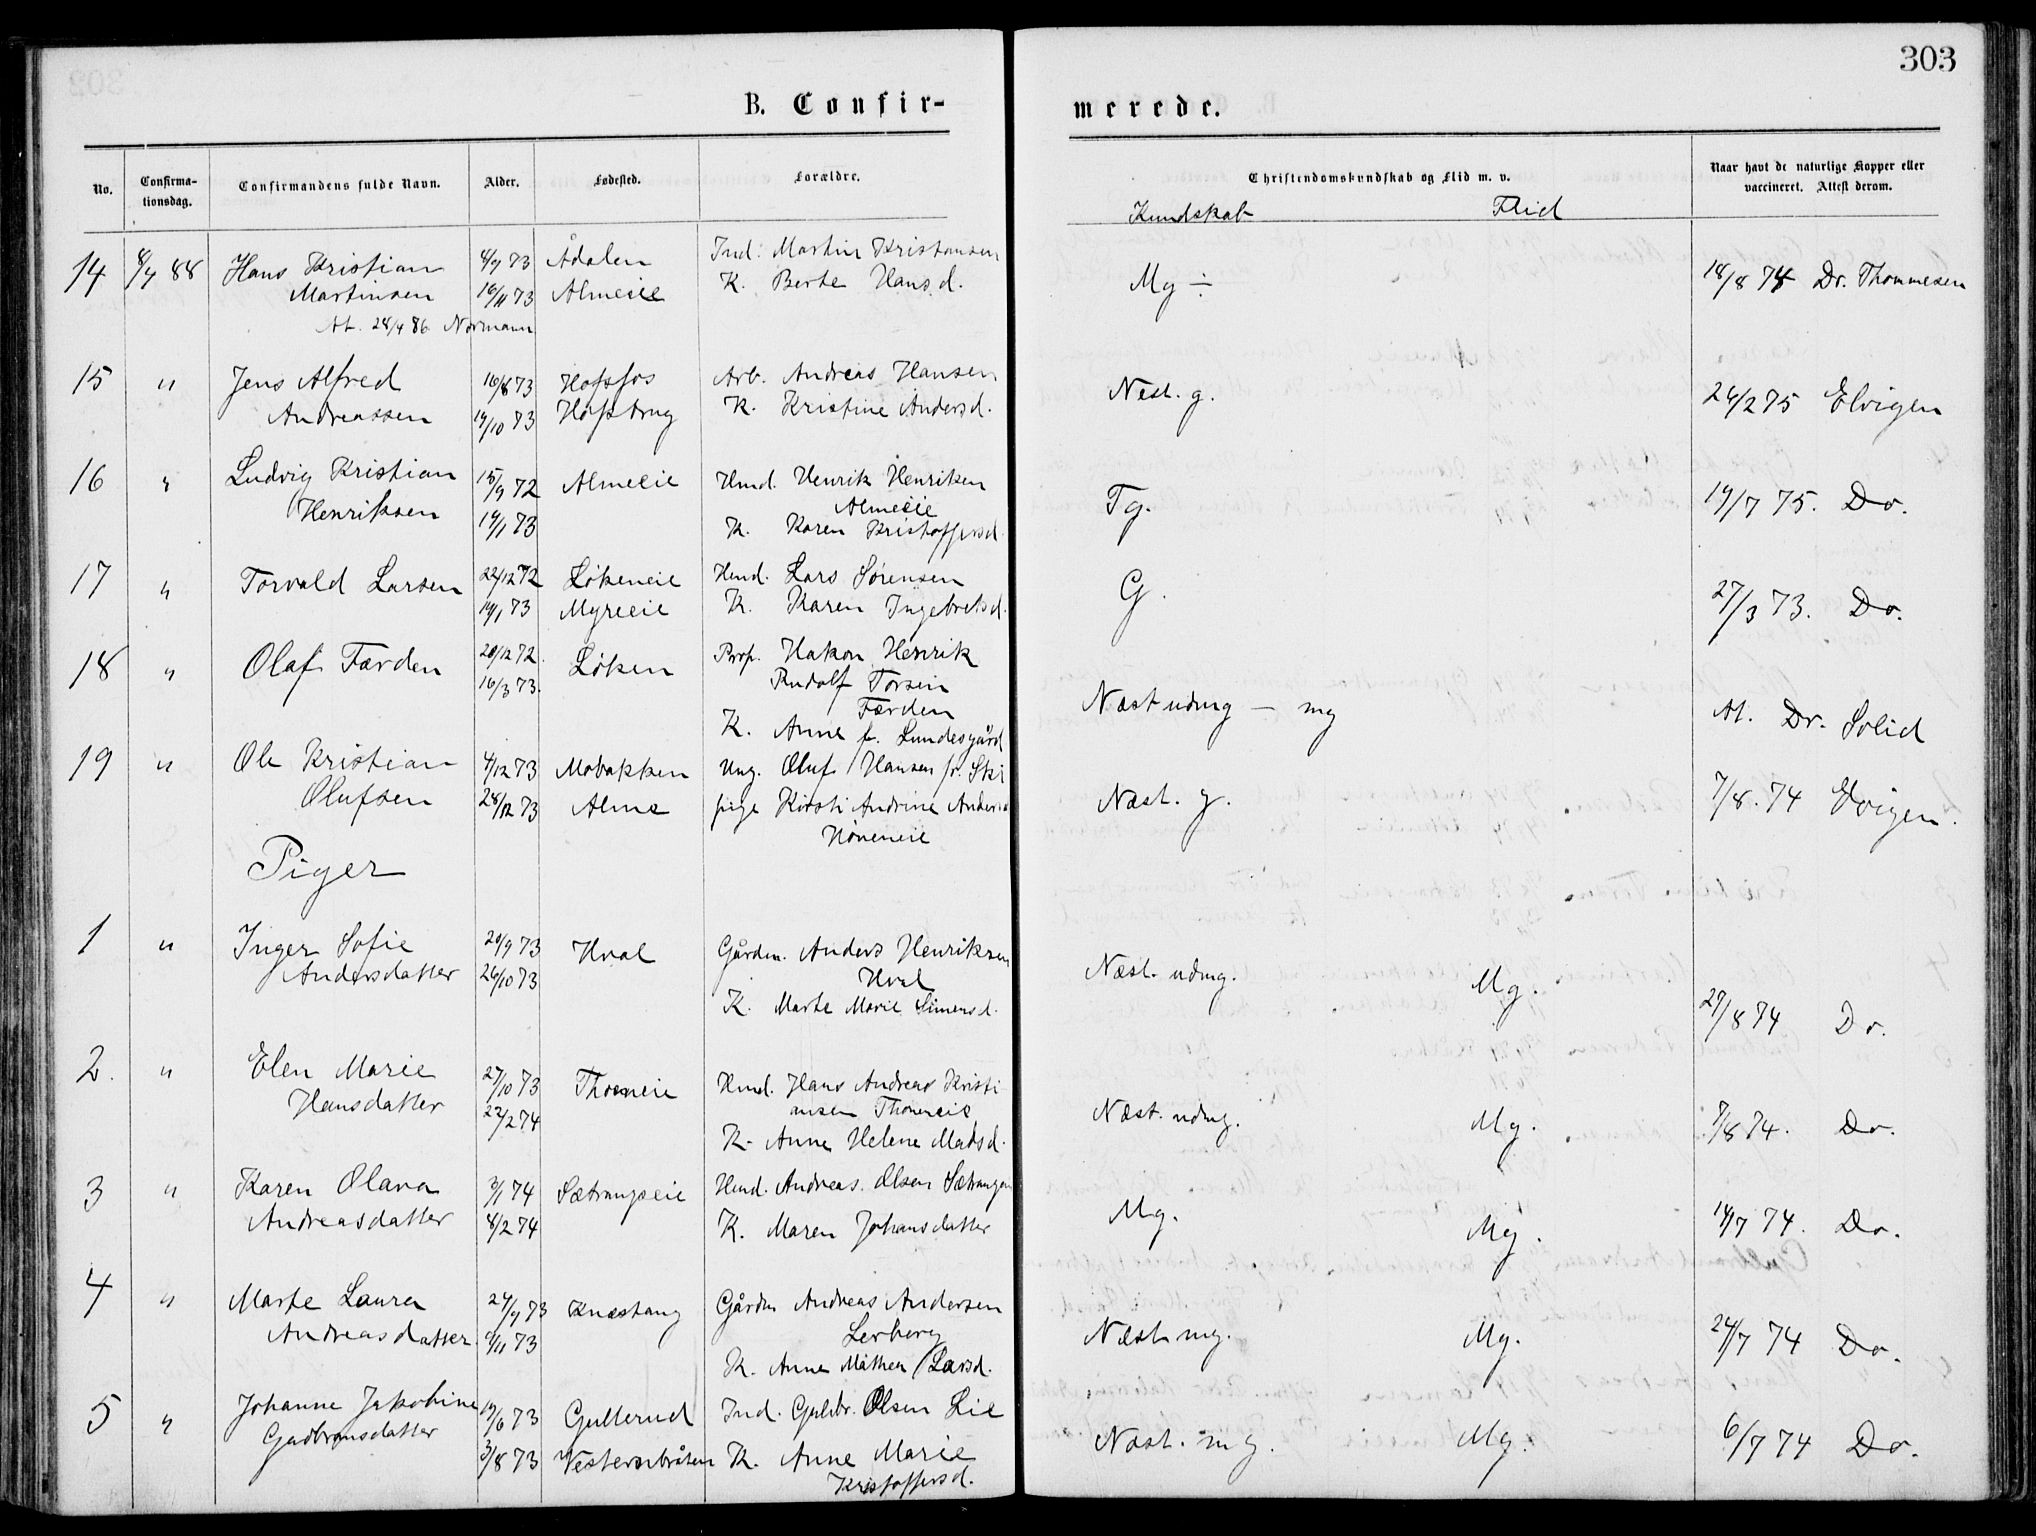 303
B. Confir-
merede.
No.
Confirma-
tionsdag.
Confirmandens fulde Navn.
Alder.
Fødested.
Forældre.
Christendomskundskab og Flid m. v.
Naar havt de naturlige Kopper eller
vaccineret. Attest derom.
Kundskab Flid
14 8/7 88 Hans Kristian 8/9 73 Ådalen Ind. Martin Kristansen
Martinsen 16/11 73 Almeeie K. Berte Hansd. Mg ÷ 18/8 74 Dr. Thommesen
At. 28/4 86. Normann
15 " Jens Alfred 16/8 73 Hofsfos Arb. Andreas Hansen
Andreassen 19/10 73 Hofsbrug K. Kristine Andersd. Nest. g. 26/2 75 Elvigen
16 " Ludvig Kristian 15/9 72 Almeeie Hmd. Henrik Henriksen
Almeeie
Henriksen 19/1 73 K. Karen Kristoffersd. Tg. 19/7 75. Do.
17 " Torvald Larsen 22/12 72 Løkeneie Hmd. Lars Sørensen
19/1 73 Myreeie K. Karen Ingebretsd. G. 27/3 73. Do.
18 " Olaf Færden 20/12 72. Løken Prop. Hakon Henrik
16/3 73. Rudolf Torsein
Færden
K. Anne f. Lundesgård Næst udmg — mg At. Dr. Solid
19 " Ole Kristian 4/12 73 Mobakken Ung. Oluf Hansen fr. Ski
Olufsen 28/12 73 Alme pige Kirsti Andrine Anders
Høneneie Næst. g. 7/8. 74 Elvigen.
Piger
1 " Inger Sofie 20/9 73 Hval Gårdm. Anders Henriksen
Andersdatter 26/10 73 Hval
K. Marte Marie Simensd. Næst. udmg. Mg. 27/8 74 Do.
2. " Elen Marie 27/10 73 Thoeneie Hmd. Hans Andreas Kristi
Hansdatter 22/2 74 ansen Thoneneie
K. Anne Helene Madsd. Næst. udmg. Mg. 7/8 74. Do.
3 " Karen Olava 3/1 74 Sætrangseie Hmd. Andreas Olsen Sætrangen
Andreasdatter 8/2 74 K. Maren Johansdatter Mg. Mg. 14/7 74. Do.
4 " Marte Laura 24/9 73 Knæstang Gårdm Andreas Andersen
Andreasdatter 9/11 73 Lerberg
K. Anne Mathea Larsd. Næst mg. Mg. 24/7 74 Do.
5 " Johanne Jakobine 19/6 73 Gullerud Ind. Guldbr. Olsen Lie
Gudbransdatter 3/8 73 Vesternbråten K. Anne Marie
Kristoffersd. Næst. mg. Mg. 6/7 74 Do.